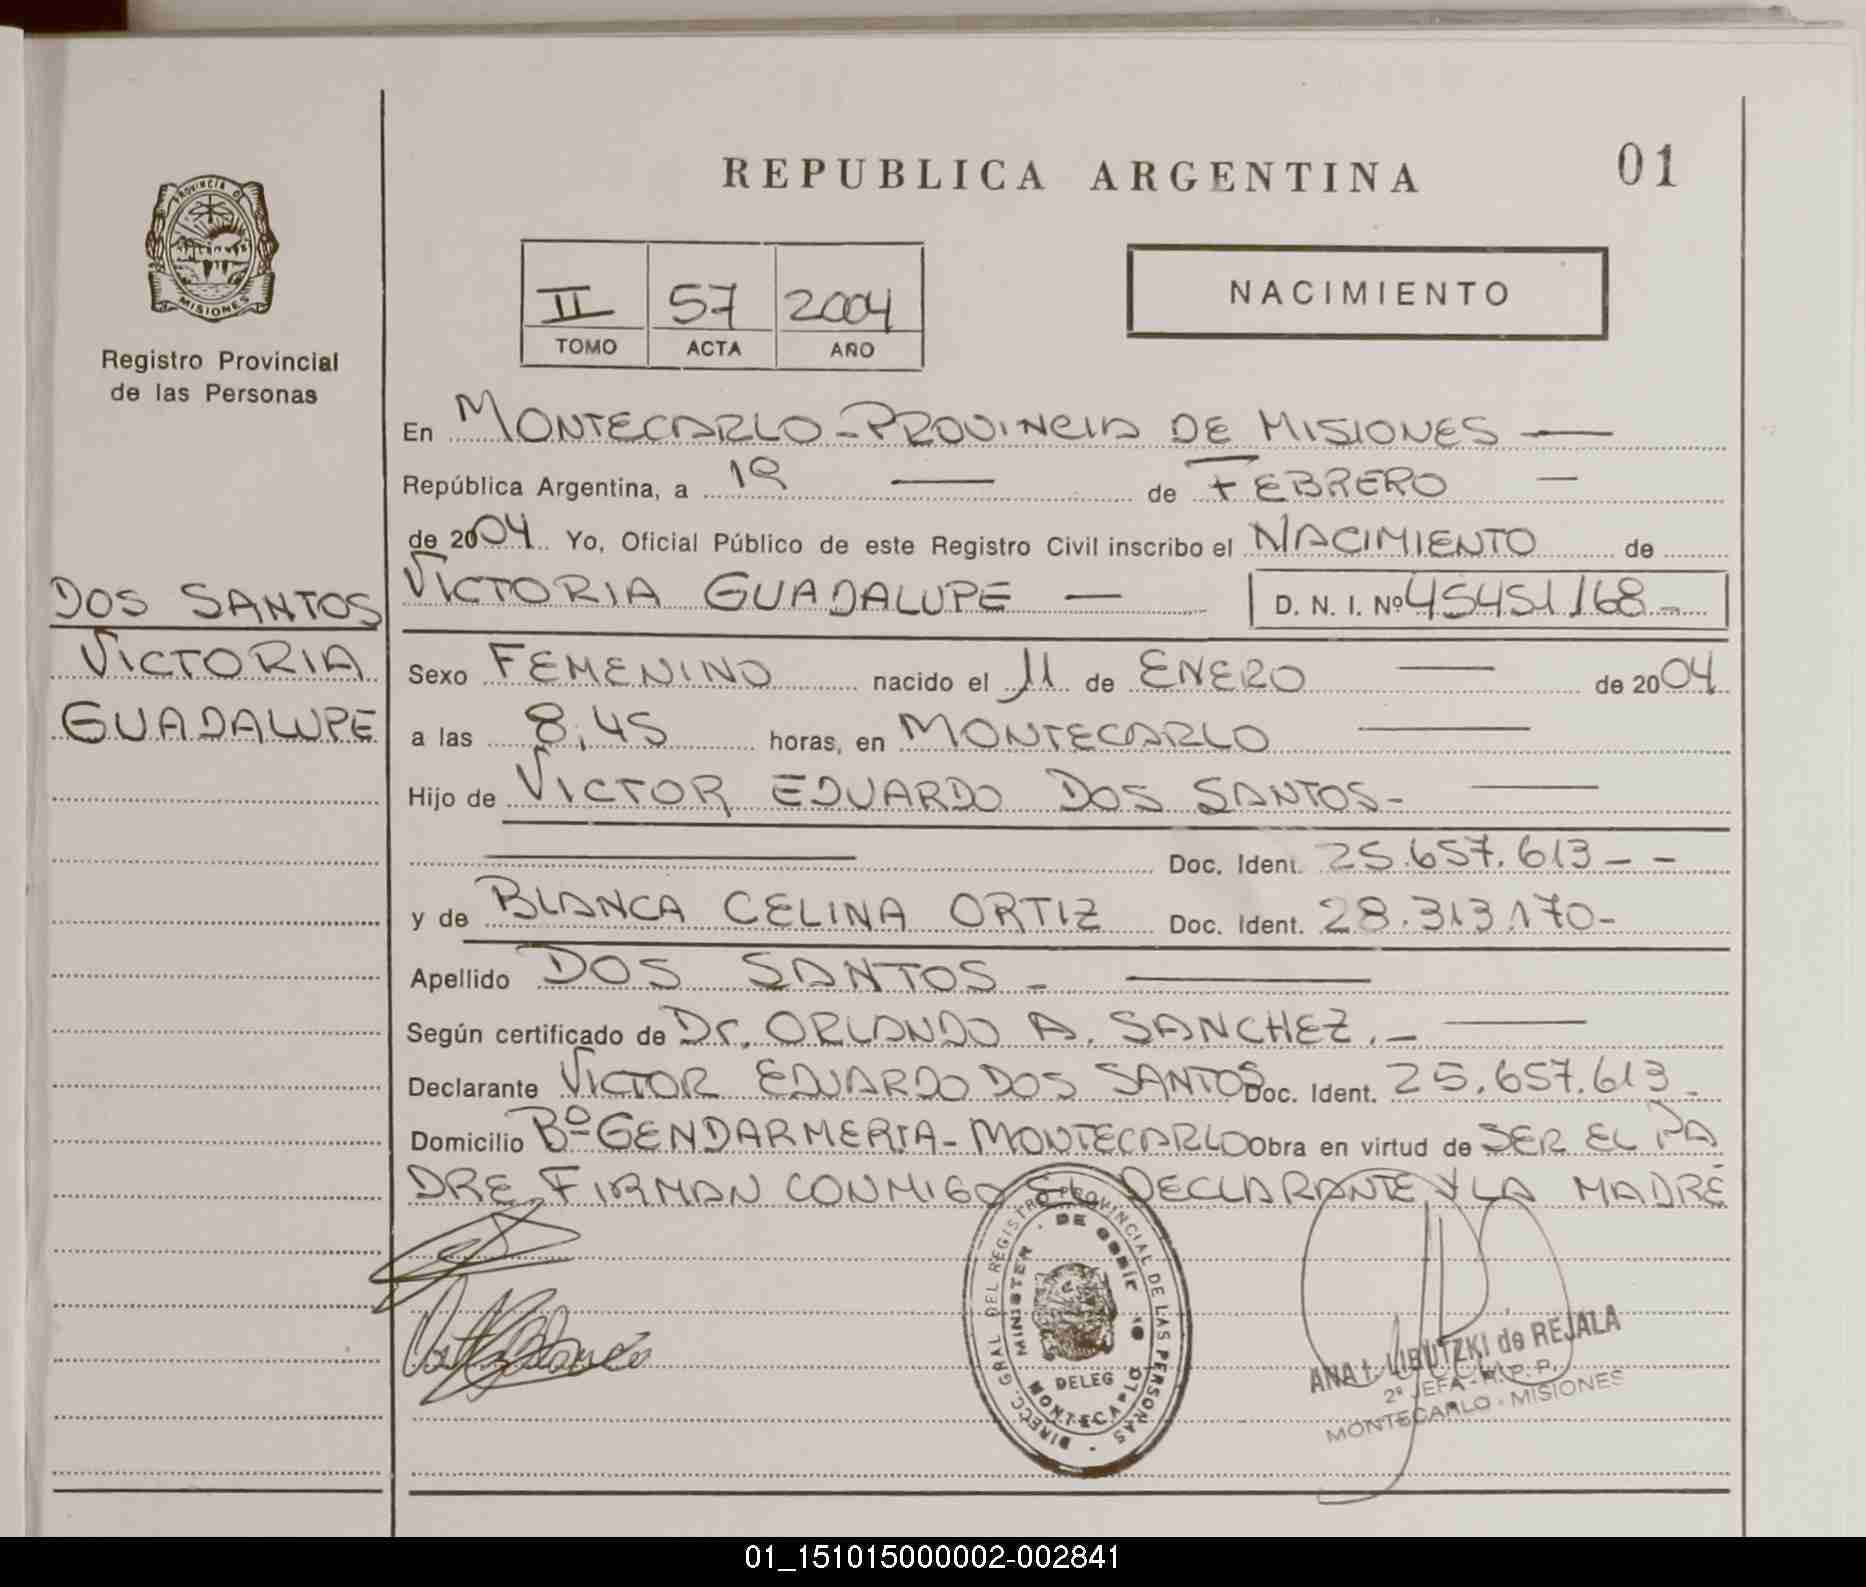 REPUBLICA ARGENTINA
01
PROVINCIA DE
MISIONES
Registro Provincial
de las Personas
II 57 2004
TOMO ACTA AÑO
NACIMIENTO
En MONTECARLO - PROVINCIA DE MISIONES —
República Argentina, a 19 — de FEBRERO —
de 2004 Yo, Oficial Público de este Registro Civil inscribo el NACIMIENTO de
DOS SANTOS
VICTORIA
GUADALUPE
VICTORIA GUADALUPE — D. N. I. Nº 45451168-
Sexo FEMENINO nacido el 11 de ENERO — de 2004
a las 8,45 horas, en MONTECARLO —
Hijo de VICTOR EDUARDO DOS SANTOS- —
Doc. Ident. 25.657.613 - -
y de BLANCA CELINA ORTIZ Doc. Ident. 28.313.170-
Apellido DOS SANTOS - —
Según certificado de Dr. ORLANDO A. SANCHEZ. - —
Declarante VICTOR EDUARDO DOS SANTOS Doc. Ident. 25.657.613 -
Domicilio Bº GENDARMERIA - MONTECARLO Obra en virtud de SER EL PA
DRE. FIRMAN CONMIGO EL DECLARANTE Y LA MADRE
DIRECC. GRAL. DEL REGISTRO PROVINCIAL DE LAS PERSONAS -
MINISTER. DE GOBIERNO
DELEG
MONTECARLO
ANA I. LIBUTZKI de REJALA
2ª JEFA - R. P. P.
MONTECARLO - MISIONES
01_151015000002-002841